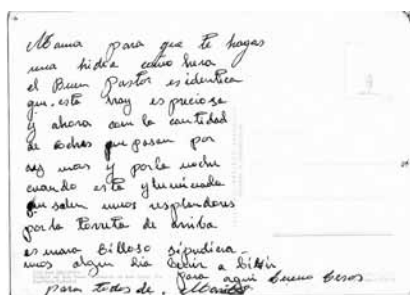 Mama para que te hagas
una hidea como hera
el Buen Pastor es identica
que este hay es preciosa
y ahora con la cantidad
de coches que pasan por
hay mas y por la noche
cuando esta yluminada
que salen unos resplandores
por la torreta de arriba
es mara billoso sipudiera
mos algun dia benir a bibir
para aqui bueno besos
para todos de